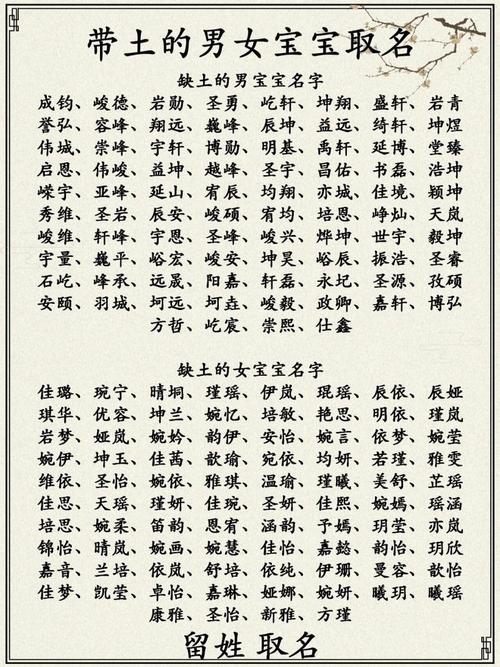 带土的男女宝宝取名
缺土的男宝宝名字
成钧、峻德、岩勋、圣勇、屹轩、坤翔、盛轩、岩青
誉弘、容峰、翔远、巍峰、辰坤、益远、绮轩、坤煜
伟城、崇峰、宇轩、博勋、明基、禹轩、延博、堂臻
启恩、伟峻、益坤、越峰、圣宇、昌佑、书磊、浩坤
嵘宇、亚峰、延山、宥辰、均翔、亦城、佳境、颖坤
秀维、圣岩、辰安、峻硕、宥均、培恩、峥灿、天岚
峻维、轩峰、宇恩、圣峰、峻兴、烨坤、世宇、毅坤
宇量、巍平、峪宏、峻安、坤昊、峪辰、振浩、圣睿
石屹、峰承、远晟、阳嘉、轩磊、永圯、圣源、孜硕
安颐、羽城、坷远、坷垚、峻毅、政卿、嘉轩、博弘
方哲、屹宸、崇熙、仕鑫
缺土的女宝宝名字
佳璐、琬宁、晴垌、瑾瑶、伊岚、琨瑶、辰依、辰娅
琪华、优容、坤兰、婉忆、培敏、艳思、明依、瑾岚
岩梦、娅岚、婉妗、韵伊、安怡、婉言、依梦、婉莹
婉伊、坤玉、佳茜、歆瑜、宛依、均妍、若瑾、雅雯
维依、圣怡、婉依、雅琪、温瑜、瑾曦、美舒、芷瑶
佳思、天瑶、瑾妍、佳琬、圣妍、佳熙、婉嫣、瑶涵
培思、婉柔、笛韵、恩宥、涵韵、予嫣、玥莹、亦岚
锦怡、晴岚、婉画、婉慧、佳怡、嘉懿、韵怡、玥欣
嘉音、兰培、依岚、舒培、依纯、伊珊、曼容、歆怡
佳梦、凯莹、卓怡、嘉琳、娅娜、婉妍、曦玥、曦瑶
康雅、圣怡、新雅、方瑾
留姓 取名